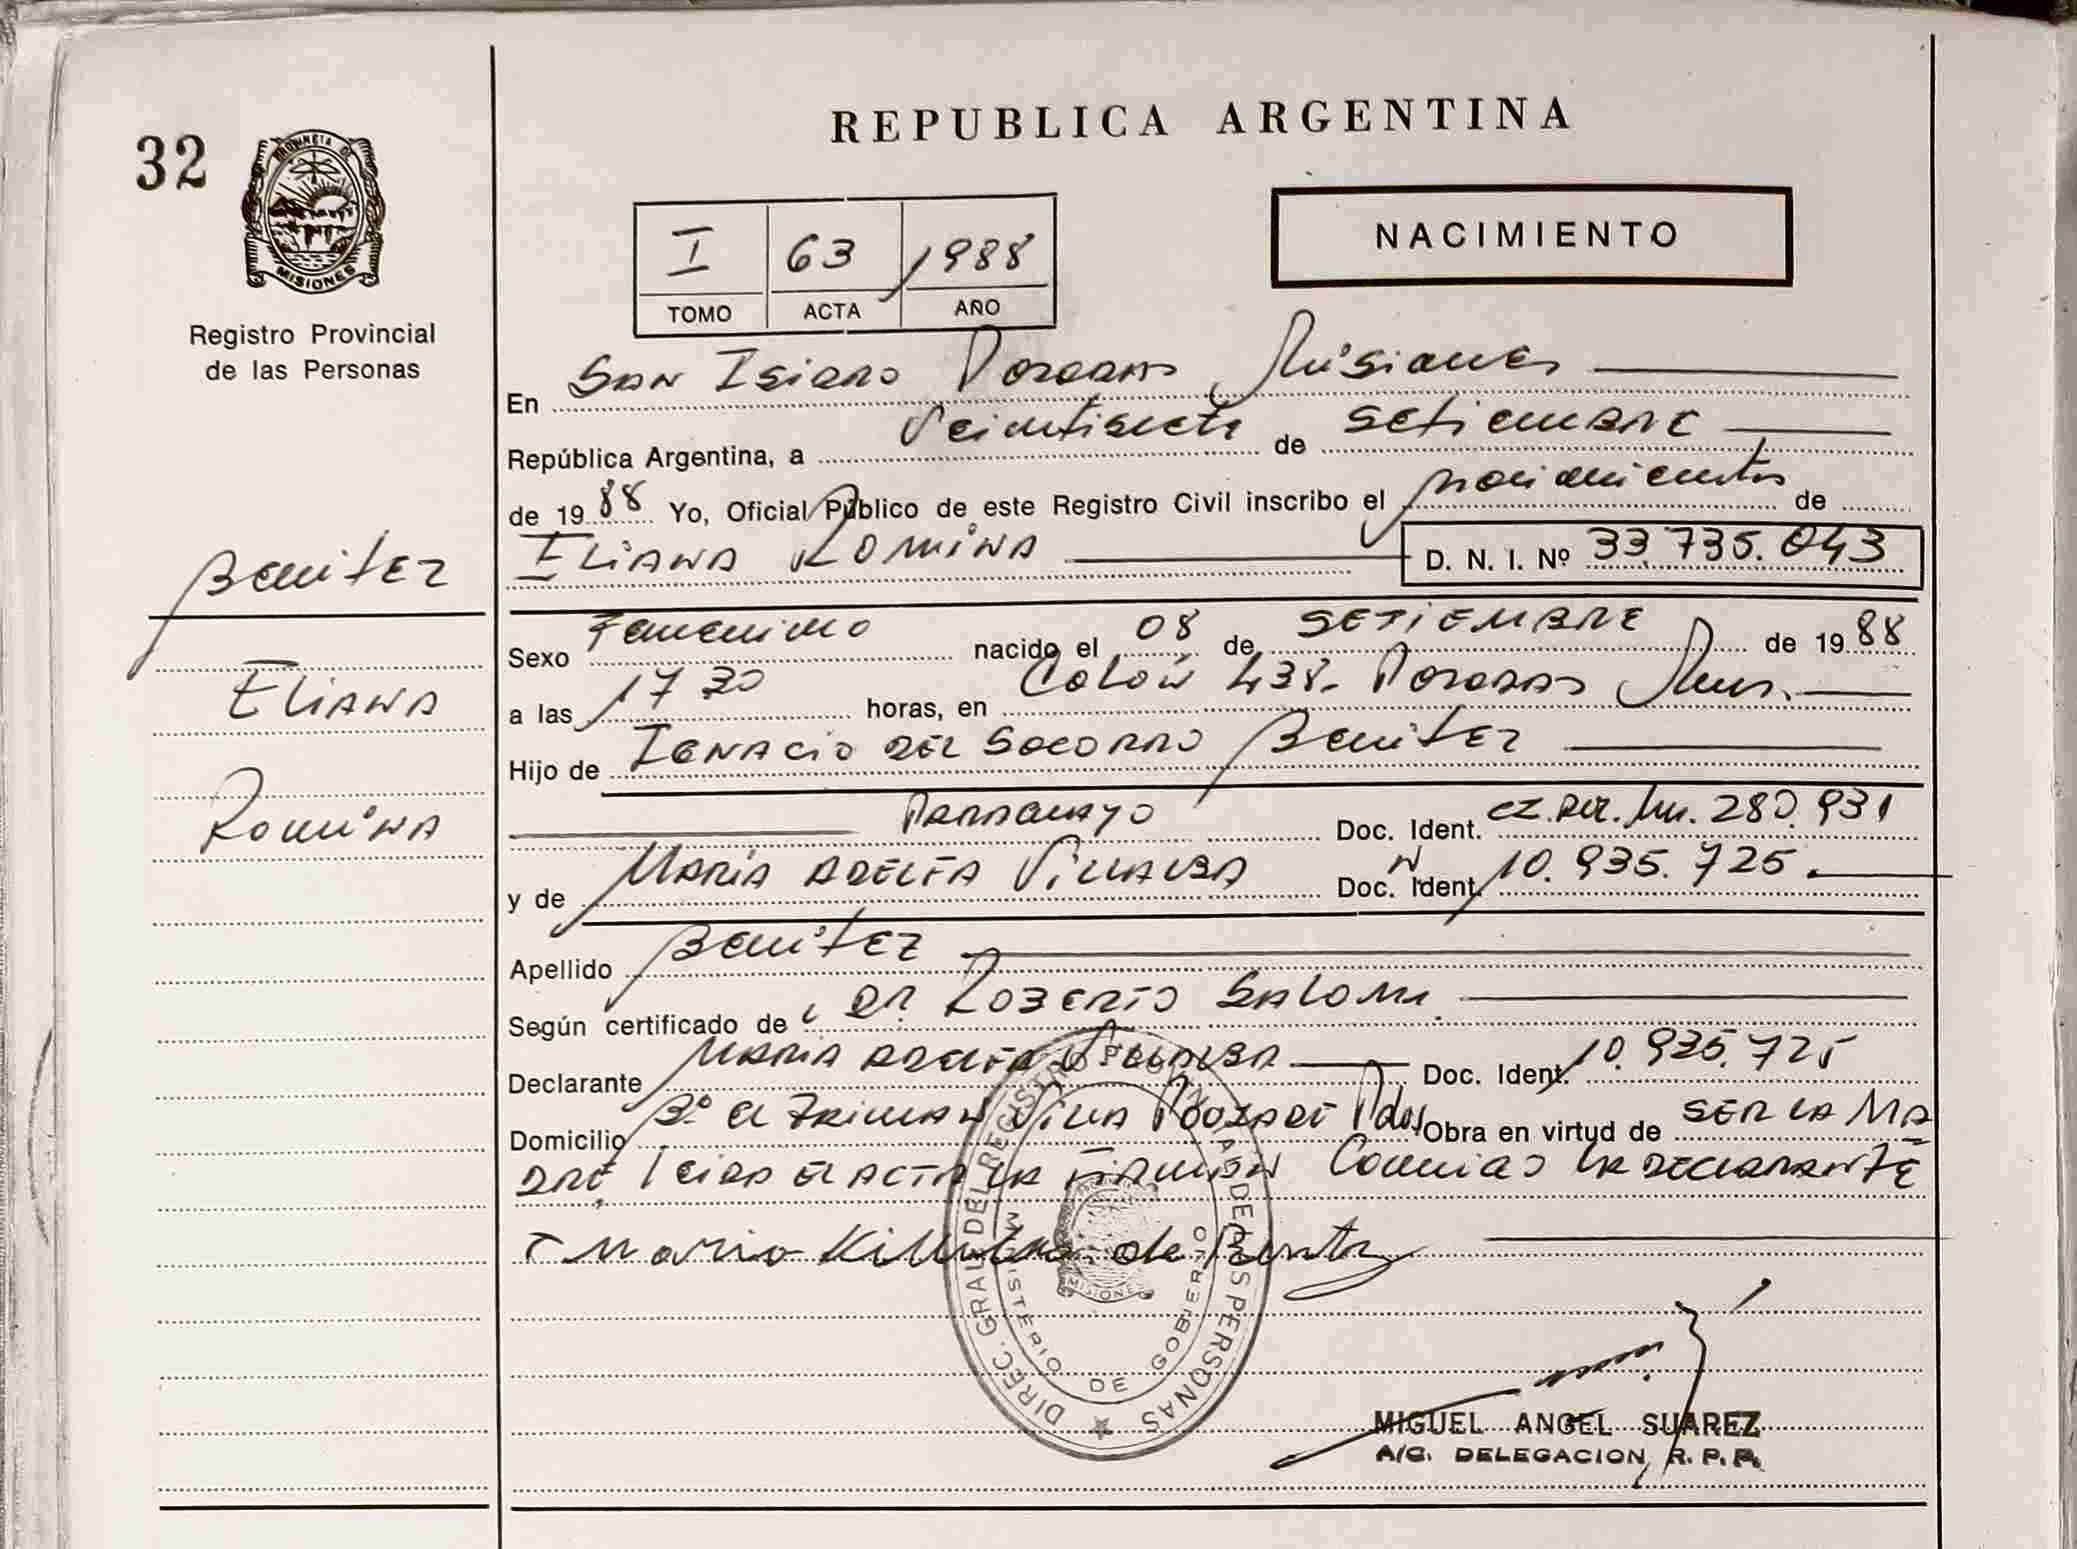 32
PROVINCIA DE
MISIONES
Registro Provincial
de las Personas
Benitez
Eliana
Romina
REPUBLICA ARGENTINA
I 63 1988
TOMO ACTA AÑO
NACIMIENTO
En San Isidro Posadas, Misiones
República Argentina, a Veintisiete de setiembre
de 1988 Yo, Oficial Público de este Registro Civil inscribo el nacimiento de
Eliana Romina D. N. I. Nº 33.735.043
Sexo Femenino nacido el 08 de SETIEMBRE de 1988
a las 17 30 horas, en Colón 438. Posadas Mnes.
Hijo de Ignacio del Socorro Benitez
Paraguayo Doc. Ident. 280.931
y de María Adelfa Villalba Doc. Ident. Nº 10.935.725.
Apellido Benitez
Según certificado de Dr. Roberto Salom
Declarante Maria Adelfa Villalba Doc. Ident. 10.935.725
Domicilio Bº Villa Pdas Obra en virtud de SER LA MA
DRE, Leida el acta la firman conmigo la declarante
Maria Villalba de Benitez
DIREC. GRAL. DEL REGISTRO PROVINCIAL DE LAS PERSONAS
MINISTERIO DE GOBIERNO
MISIONES
MIGUEL ANGEL SUAREZ
A/C. DELEGACION R. P. P.